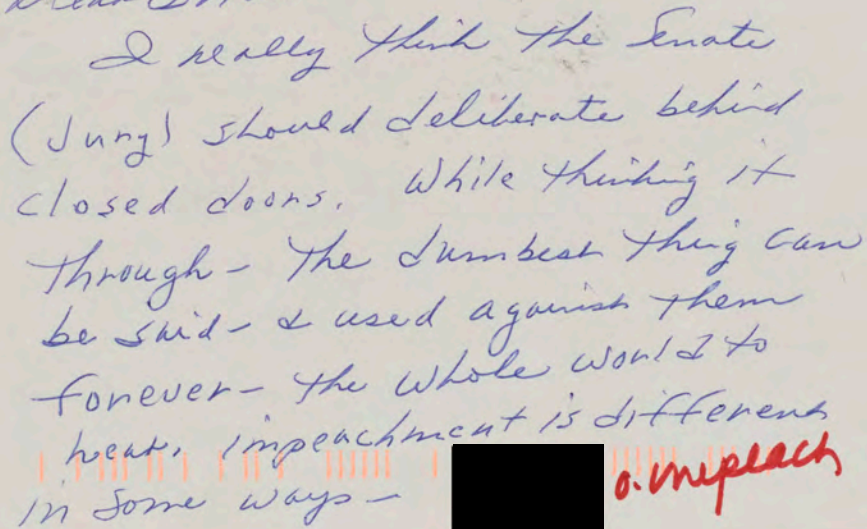 I really think the Senate
(Jury) should deliberate behind
closed doors. While thinking it
through - The dumbest thing can
be said - & used against them
forever - the whole world to
hear. impeachment is different
in some ways -
o. impeach